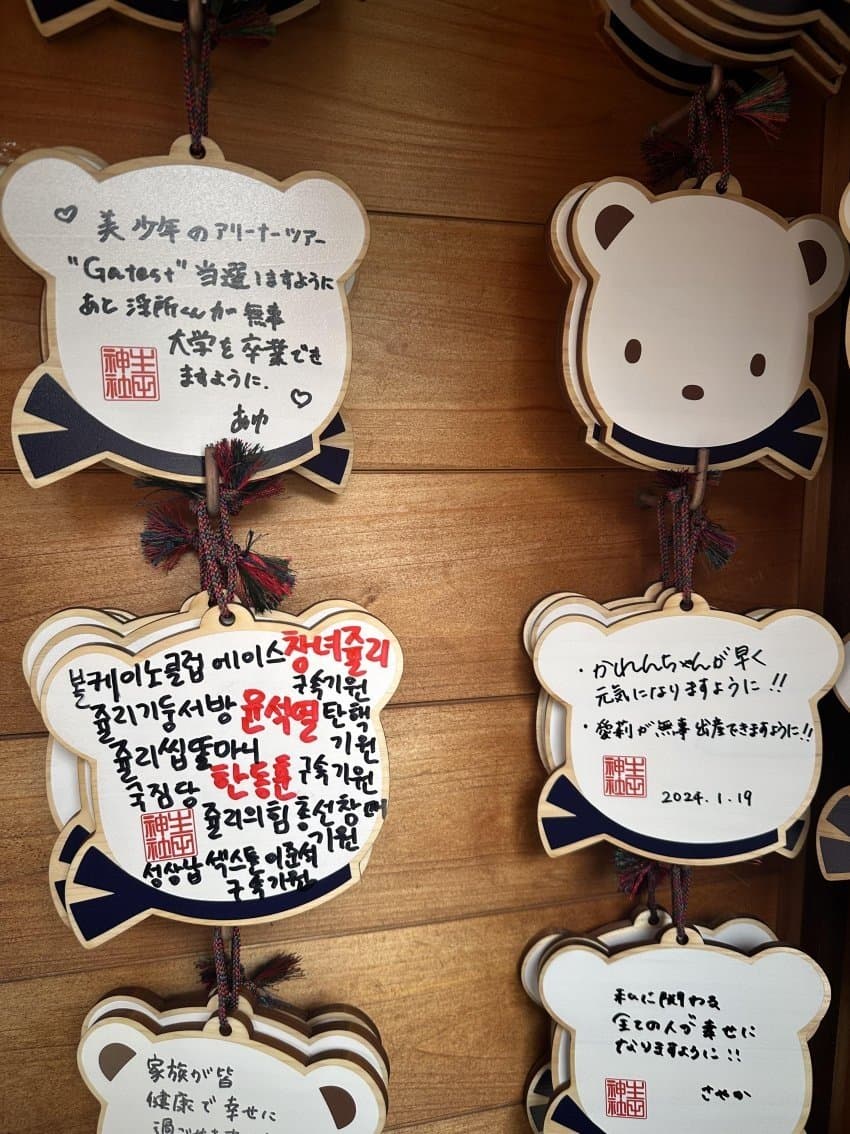 美少年のアリーナーツアー
"Gatest" 当選しますように
あと 浮所くんが 無事
大学を卒業でき
ますように.
あゆ
生田
神社
볼케이노클럽 에이스 창녀쥴리
구속기원
쥴리기둥서방 윤석열 탄핵
기원
쥴리씹똘마니 한동훈 구속기원
국짐당
쥴리의힘 총선참패
기원
성상납 섹스톤 이준석
구속기원
生田
神社
・かれんちゃんが早く
元気になりますように!!
・愛莉が無事出産できますように!!
生田
神社
2024.1.19
家族が皆
健康で幸せに
私に関わる
全ての人が幸せに
なりますように!!
生田
神社
さやか